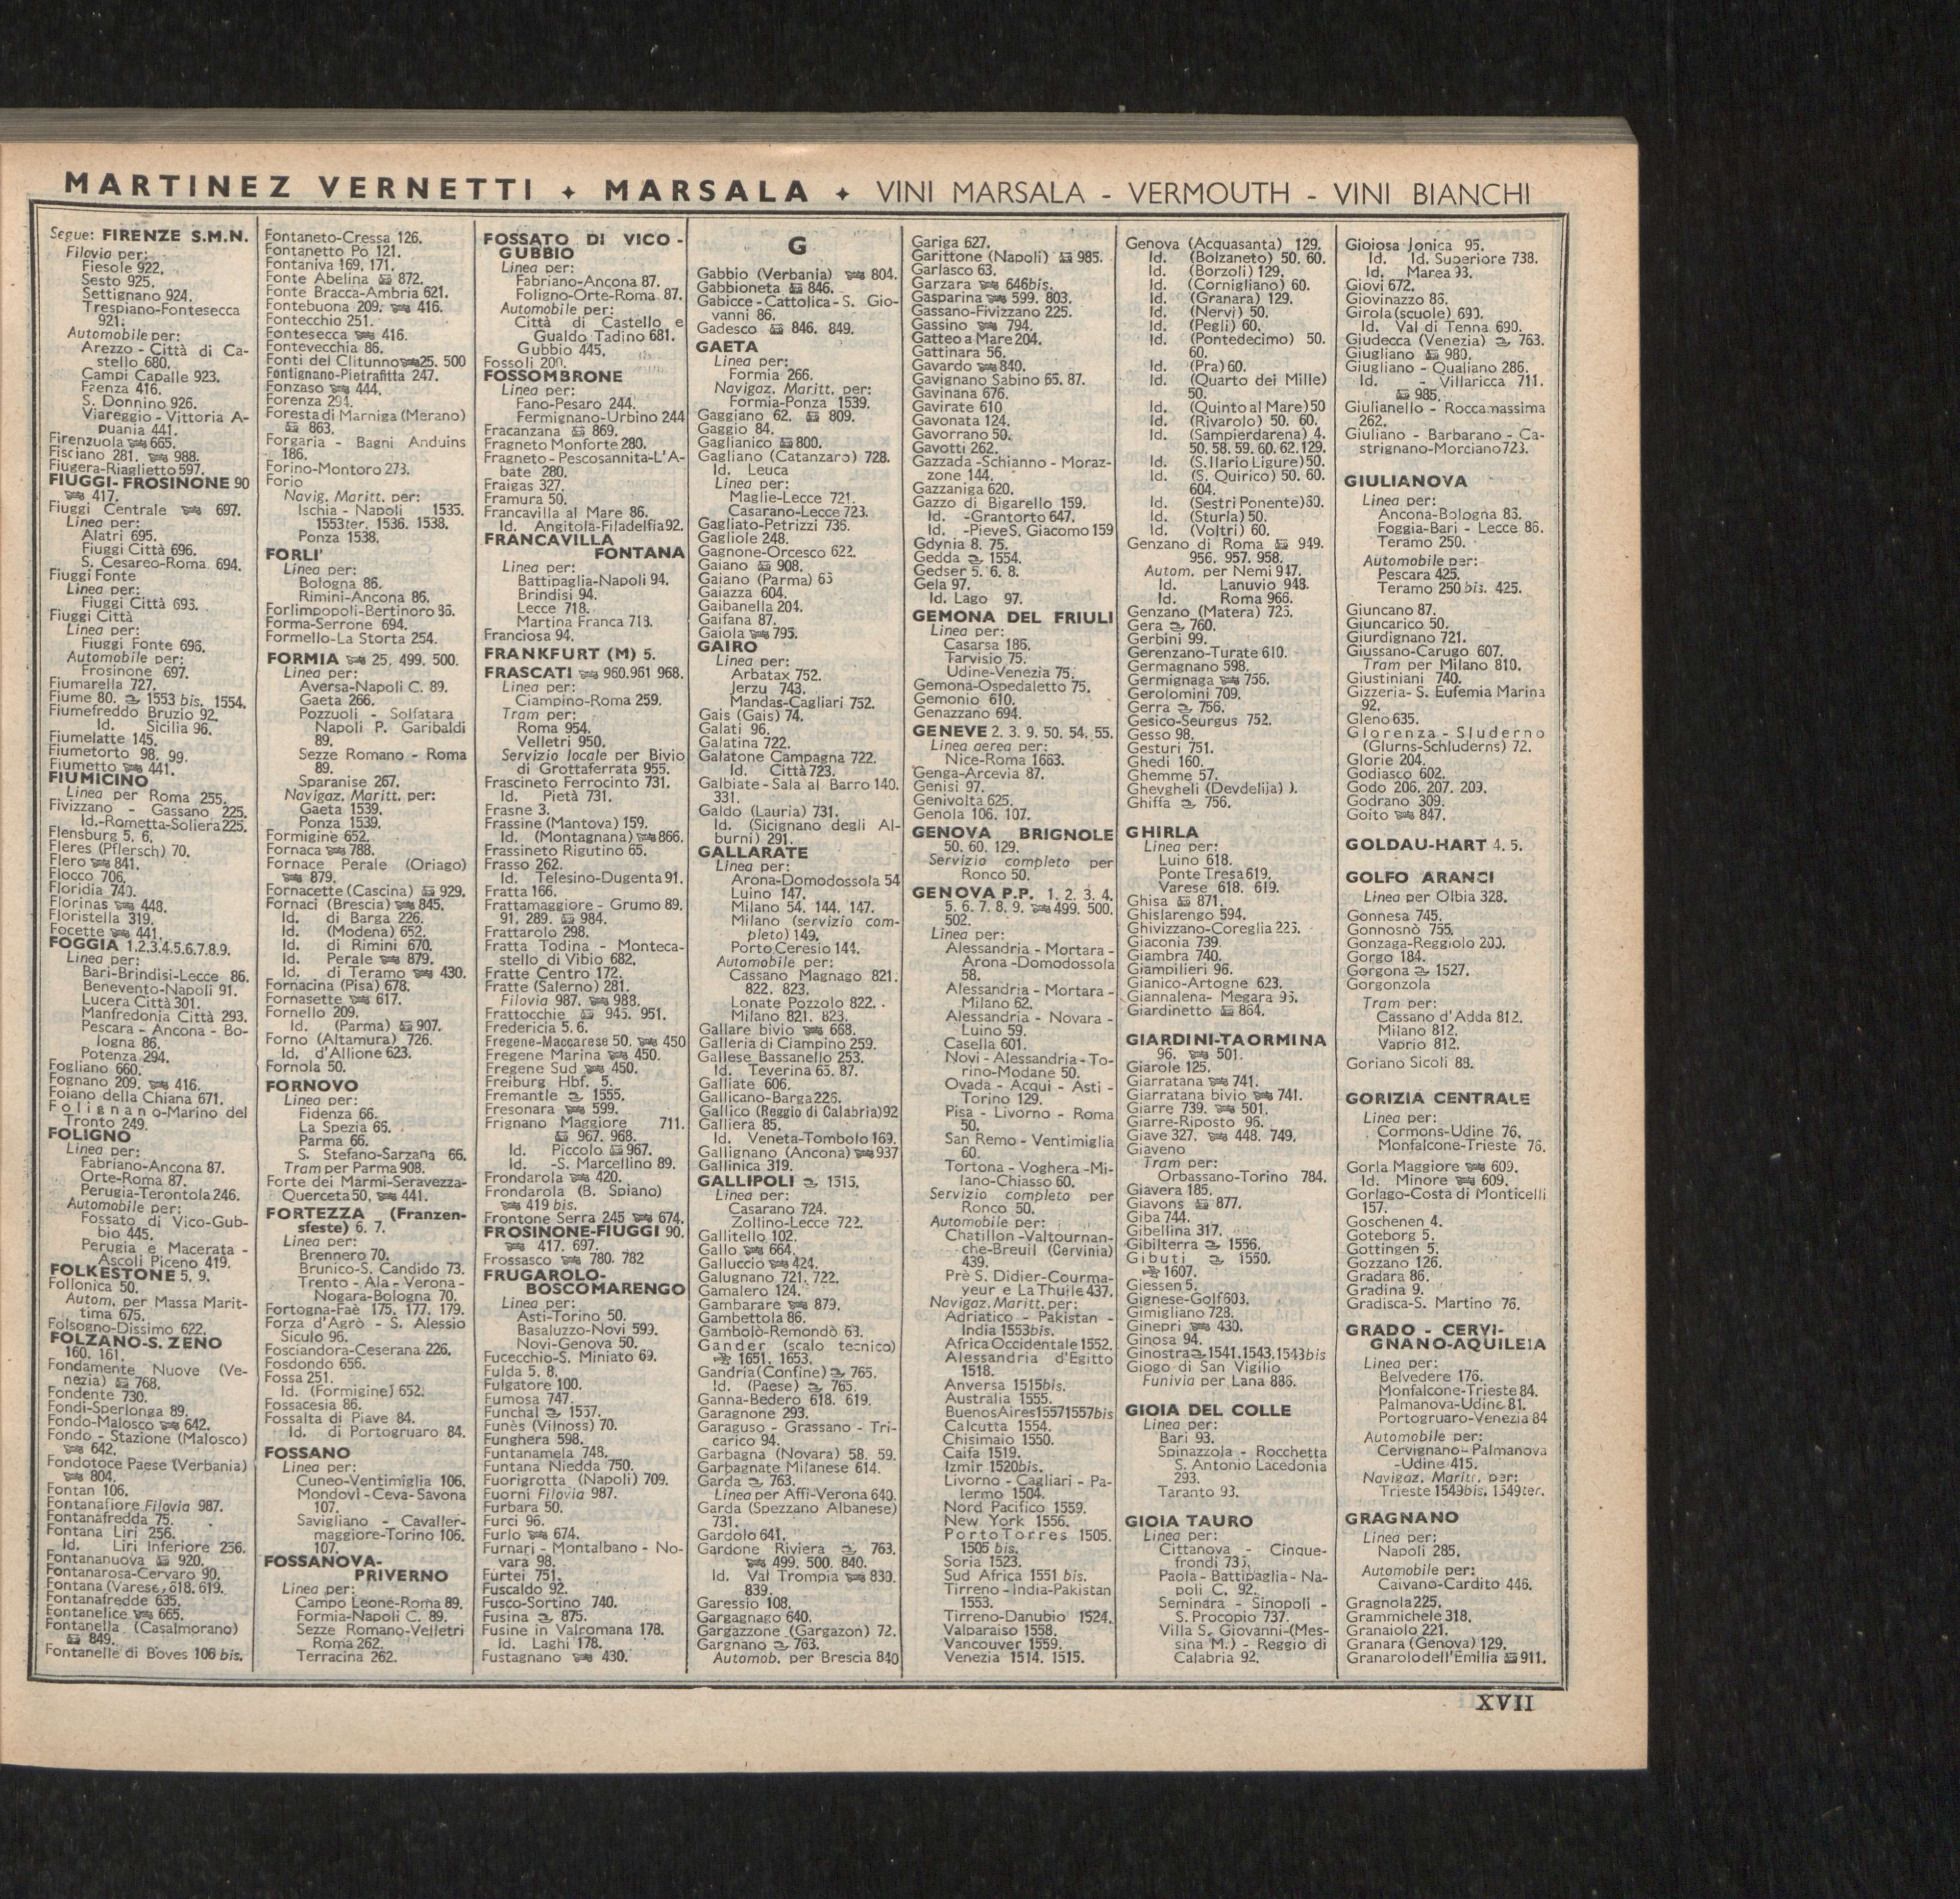 MARTINEZ VERNETTI ✦ MARSALA ✦ VINI MARSALA - VERMOUTH - VINI BIANCHI
Segue: FIRENZE S.M.N.
Filovia per:
Fiesole 922.
Sesto 925.
Settignano 924.
Trespiano-Fontesecca
921.
Automobile per:
Arezzo - Città di Ca-
stello 680.
Campi Capalle 923.
Faenza 416.
S. Donnino 926.
Viareggio - Vittoria A-
puania 441.
Firenzuola 665.
Fisciano 281. 988.
Fiugera-Riaglietto 597.
FIUGGI-FROSINONE 90
417.
Fiuggi Centrale 697.
Linea per:
Alatri 695.
Fiuggi Città 696.
S. Cesareo-Roma 694.
Fiuggi Fonte
Linea per:
Fiuggi Città 693.
Fiuggi Città
Linea per:
Fiuggi Fonte 696.
Automobile per:
Frosinone 697.
Fiumarella 727.
Fiume 80. 1553 bis. 1554.
Fiumefreddo Bruzio 92.
Id. Sicilia 96.
Fiumelatte 145.
Fiumetorto 98. 99.
Fiumetto 441.
FIUMICINO
Linea per Roma 255.
Fivizzano - Gassano 225.
Id.-Rometta-Soliera 225.
Flensburg 5. 6.
Fleres (Pflersch) 70.
Flero 841.
Flocco 706.
Floridia 740.
Florinas 448.
Floristella 319.
Focette 441.
FOGGIA 1.2.3.4.5.6.7.8.9.
Linea per:
Bari-Brindisi-Lecce 86.
Benevento-Napoli 91.
Lucera Città 301.
Manfredonia Città 293.
Pescara - Ancona - Bo-
logna 86.
Potenza 294.
Fogliano 660.
Fognano 209. 416.
Foiano della Chiana 671.
Folignano-Marino del
Tronto 249.
FOLIGNO
Linea per:
Fabriano-Ancona 87.
Orte-Roma 87.
Perugia-Terontola 246.
Automobile per:
Fossato di Vico-Gub-
bio 445.
Perugia e Macerata -
Ascoli Piceno 419.
FOLKESTONE 5. 9.
Follonica 50.
Autom. per Massa Marit-
tima 675.
Folsogno-Dissimo 622.
FOLZANO-S. ZENO
160. 161.
Fondamente Nuove (Ve-
nezia) 768.
Fondente 730.
Fondi-Sperlonga 89.
Fondo-Malosco 642.
Fondo - Stazione (Malosco)
642.
Fondotoce Paese (Verbania)
804.
Fontan 106.
Fontanafiore Filovia 987.
Fontanafredda 75.
Fontana Liri 256.
Id. Liri Inferiore 256.
Fontananuova 920.
Fontanarosa-Cervaro 90.
Fontana (Varese, 618. 619.
Fontanafredde 635.
Fontanelice 665.
Fontanella (Casalmorano)
849.
Fontanelle di Boves 106 bis.
Fontaneto-Cressa 126.
Fontanetto Po 121.
Fontaniva 169. 171.
Fonte Abelina 872.
Fonte Bracca-Ambria 621.
Fontebuona 209. 416.
Fontecchio 251.
Fontesecca 416.
Fontevecchia 86.
Fonti del Clitunno 25. 500
Fontignano-Pietrafitta 247.
Fonzaso 444.
Forenza 294.
Foresta di Marniga (Merano)
863.
Forgaria - Bagni Anduins
186.
Forino-Montoro 273.
Forio
Navig. Maritt. per:
Ischia - Napoli 1535.
1553ter. 1536. 1538.
Ponza 1538.
FORLI'
Linea per:
Bologna 86.
Rimini-Ancona 86.
Forlimpopoli-Bertinoro 86.
Forma-Serrone 694.
Formello-La Storta 254.
FORMIA 25. 499. 500.
Linea per:
Aversa-Napoli C. 89.
Gaeta 266.
Pozzuoli - Solfatara
Napoli P. Garibaldi
89.
Sezze Romano - Roma
89.
Sparanise 267.
Navigaz. Maritt. per:
Gaeta 1539.
Ponza 1539.
Formigine 652.
Fornaca 788.
Fornace Perale (Oriago)
879.
Fornacette (Cascina) 929.
Fornaci (Brescia) 845.
Id. di Barga 226.
Id. (Modena) 652.
Id. di Rimini 670.
Id. Perale 879.
Id. di Teramo 430.
Fornacina (Pisa) 678.
Fornasette 617.
Fornello 209.
Id. (Parma) 907.
Forno (Altamura) 726.
Id. d'Allione 623.
Fornola 50.
FORNOVO
Linea per:
Fidenza 66.
La Spezia 65.
Parma 66.
S. Stefano-Sarzana 66.
Tram per Parma 908.
Forte dei Marmi-Seravezza-
Querceta 50. 441.
FORTEZZA (Franzen-
sfeste) 6. 7.
Linea per:
Brennero 70.
Brunico-S. Candido 73.
Trento - Ala - Verona -
Nogara-Bologna 70.
Fortogna-Faè 175. 177. 179.
Forza d'Agrò - S. Alessio
Siculo 96.
Fosciandora-Ceserana 226.
Fosdondo 656.
Fossa 251.
Id. (Formigine) 652.
Fossacesia 86.
Fossalta di Piave 84.
Id. di Portogruaro 84.
FOSSANO
Linea per:
Cuneo-Ventimiglia 106.
Mondovi - Ceva-Savona
107.
Savigliano - Cavaller-
maggiore-Torino 106.
107.
FOSSANOVA-
PRIVERNO
Linea per:
Campo Leone-Roma 89.
Formia-Napoli C. 89.
Sezze Romano-Velletri
Roma 262.
Terracina 262.
FOSSATO DI VICO -
GUBBIO
Linea per:
Fabriano-Ancona 87.
Foligno-Orte-Roma 87.
Automobile per:
Città di Castello e
Gualdo Tadino 681.
Gubbio 445.
Fossoli 200.
FOSSOMBRONE
Linea per:
Fano-Pesaro 244.
Fermignano-Urbino 244
Fracanzana 869.
Fragneto Monforte 280.
Fragneto - Pescosannita-L'A-
bate 280.
Fraigas 327.
Framura 50.
Francavilla al Mare 86.
Id. Angitola-Filadelfia 92.
FRANCAVILLA
FONTANA
Linea per:
Battipaglia-Napoli 94.
Brindisi 94.
Lecce 718.
Martina Franca 718.
Franciosa 94.
FRANKFURT (M) 5.
FRASCATI 960.961 968.
Linea per:
Ciampino-Roma 259.
Tram per:
Roma 954.
Velletri 950.
Servizio locale per Bivio
di Grottaferrata 955.
Frascineto Ferrocinto 731.
Id. Pietà 731.
Frasne 3.
Frassine (Mantova) 159.
Id. (Montagnana) 866.
Frassineto Rigutino 65.
Frasso 262.
Id. Telesino-Dugenta 91.
Fratta 166.
Frattamaggiore - Grumo 89.
91. 289. 984.
Frattarolo 298.
Fratta Todina - Monteca-
stello di Vibio 682.
Fratte Centro 172.
Fratte (Salerno) 281.
Filovia 987. 988.
Frattocchie 945. 951.
Fredericia 5. 6.
Fregene-Maccarese 50. 450
Fregene Marina 450.
Fregene Sud 450.
Freiburg Hbf. 5.
Fremantle 1555.
Fresonara 599.
Frignano Maggiore 711.
967. 968.
Id. Piccolo 967.
Id. -S. Marcellino 89.
Frondarola 420.
Frondarola (B. Spiano)
419 bis.
Frontone Serra 245 674.
FROSINONE-FIUGGI 90.
417. 697.
Frossasco 780. 782
FRUGAROLO-
BOSCOMARENGO
Linea per:
Asti-Torino 50.
Basaluzzo-Novi 599.
Novi-Genova 50.
Fucecchio-S. Miniato 69.
Fulda 5. 8.
Fulgatore 100.
Fumosa 747.
Funchal 1557.
Funès (Vilnoss) 70.
Funghera 598.
Funtanamela 748.
Funtana Niedda 750.
Fuorigrotta (Napoli) 709.
Fuorni Filovia 987.
Furbara 50.
Furci 96.
Furlo 674.
Furnari - Montalbano - No-
vara 98.
Furtei 751.
Fuscaldo 92.
Fusco-Sortino 740.
Fusina 875.
Fusine in Valromana 178.
Id. Laghi 178.
Fustagnano 430.
G
Gabbio (Verbania) 804.
Gabbioneta 846.
Gabicce - Cattolica - S. Gio-
vanni 86.
Gadesco 846. 849.
GAETA
Linea per:
Formia 266.
Navigaz. Maritt. per:
Formia-Ponza 1539.
Gaggiano 62. 809.
Gaggio 84.
Gaglianico 800.
Gagliano (Catanzaro) 728.
Id. Leuca
Linea per:
Maglie-Lecce 721.
Casarano-Lecce 723.
Gagliato-Petrizzi 736.
Gagliole 248.
Gagnone-Orcesco 622.
Gaiano 908.
Gaiano (Parma) 65
Gaiazza 604.
Gaibanella 204.
Gaifana 87.
Gaiola 795.
GAIRO
Linea per:
Arbatax 752.
Jerzu 743.
Mandas-Cagliari 752.
Gais (Gais) 74.
Galati 96.
Galatina 722.
Galatone Campagna 722.
Id. Città 723.
Galbiate - Sala al Barro 140.
331.
Galdo (Lauria) 731.
Id. (Sicignano degli Al-
burni) 291.
GALLARATE
Linea per:
Arona-Domodossola 54
Luino 147.
Milano 54. 144. 147.
Milano (servizio com-
pleto) 149.
Porto Ceresio 144.
Automobile per:
Cassano Magnago 821.
822. 823.
Lonate Pozzolo 822.
Milano 821. 823.
Gallare bivio 668.
Galleria di Ciampino 259.
Gallese Bassanello 253.
Id. Teverina 65. 87.
Galliate 606.
Gallicano-Barga 226.
Gallico (Reggio di Calabria) 92
Galliera 85.
Id. Veneta-Tombolo 169.
Gallignano (Ancona) 937
Gallinica 319.
GALLIPOLI 1515.
Linea per:
Casarano 724.
Zollino-Lecce 722.
Gallitello 102.
Gallo 664.
Galluccio 424.
Galugnano 721. 722.
Gamalero 124.
Gambarare 879.
Gambettola 86.
Gambolò-Remondò 63.
Gander (scalo tecnico)
1651. 1653.
Gandria (Confine) 765.
Id. (Paese) 765.
Ganna-Bedero 618. 619.
Garagnone 293.
Garaguso - Grassano - Tri-
carico 94.
Garbagna (Novara) 58. 59.
Garbagnate Milanese 614.
Garda 763.
Linea per Affi-Verona 640.
Garda (Spezzano Albanese)
731.
Gardolo 641.
Gardone Riviera 763.
499. 500. 840.
Id. Val Trompia 830.
839.
Garessio 108.
Gargagnago 640.
Gargazzone (Gargazon) 72.
Gargnano 763.
Automob. per Brescia 840
Gariga 627.
Garittone (Napoli) 985.
Garlasco 63.
Garzara 646bis.
Gasparina 599. 803.
Gassano-Fivizzano 225.
Gassino 794.
Gatteo a Mare 204.
Gattinara 56.
Gavardo 840.
Gavignano Sabino 65. 87.
Gavinana 676.
Gavirate 610
Gavonata 124.
Gavorrano 50.
Gavotti 262.
Gazzada -Schianno - Moraz-
zone 144.
Gazzaniga 620.
Gazzo di Bigarello 159.
Id. -Grantorto 647.
Id. -Pieve S. Giacomo 159
Gdynia 8. 75.
Gedda 1554.
Gedser 5. 6. 8.
Gela 97.
Id. Lago 97.
GEMONA DEL FRIULI
Linea per:
Casarsa 186.
Tarvisio 75.
Udine-Venezia 75.
Gemona-Ospedaletto 75.
Gemonio 610.
Genazzano 694.
GENEVE 2. 3. 9. 50. 54. 55.
Linea aerea per:
Nice-Roma 1663.
Genga-Arcevia 87.
Genisi 97.
Genivolta 625.
Genola 106. 107.
GENOVA BRIGNOLE
50. 60. 129.
Servizio completo per
Ronco 50.
GENOVA P.P. 1. 2. 3. 4.
5. 6. 7. 8. 9. 499. 500.
502.
Linea per:
Alessandria - Mortara -
Arona -Domodossola
58.
Alessandria - Mortara -
Milano 62.
Alessandria - Novara -
Luino 59.
Casella 601.
Novi - Alessandria - To-
rino-Modane 50.
Ovada - Acqui - Asti -
Torino 129.
Pisa - Livorno - Roma
50.
San Remo - Ventimiglia
60.
Tortona - Voghera -Mi-
lano-Chiasso 60.
Servizio completo per
Ronco 50.
Automobile per:
Chatillon -Valtournan-
che-Breuil (Cervinia)
439.
Prè S. Didier-Courma-
yeur e La Thuile 437.
Navigaz. Maritt. per:
Adriatico - Pakistan -
India 1553bis.
Africa Occidentale 1552.
Alessandria d'Egitto
1518.
Anversa 1515bis.
Australia 1555.
Buenos Aires 1557 1557bis
Calcutta 1554.
Chisimaio 1550.
Caifa 1519.
Izmir 1520bis.
Livorno - Cagliari - Pa-
lermo 1504.
Nord Pacifico 1559.
New York 1556.
Porto Torres 1505.
1505 bis.
Soria 1523.
Sud Africa 1551 bis.
Tirreno - India-Pakistan
1553.
Tirreno-Danubio 1524.
Valparaiso 1558.
Vancouver 1559.
Venezia 1514. 1515.
Genova (Acquasanta) 129.
Id. (Bolzaneto) 50. 60.
Id. (Borzoli) 129.
Id. (Cornigliano) 60.
Id. (Granara) 129.
Id. (Nervi) 50.
Id. (Pegli) 60.
Id. (Pontedecimo) 50.
60.
Id. (Pra) 60.
Id. (Quarto dei Mille)
50.
Id. (Quinto al Mare) 50
Id. (Rivarolo) 50. 60.
Id. (Sampierdarena) 4.
50. 58. 59. 60. 62. 129.
Id. (S. Ilario Ligure) 50.
Id. (S. Quirico) 50. 60.
604.
Id. (Sestri Ponente) 60.
Id. (Sturla) 50.
Id. (Voltri) 60.
Genzano di Roma 949.
956. 957. 958.
Autom. per Nemi 947.
Id. Lanuvio 948.
Id. Roma 966.
Genzano (Matera) 725.
Gera 760.
Gerbini 99.
Gerenzano-Turate 610.
Germagnano 598.
Germignaga 756.
Gerolomini 709.
Gerra 756.
Gesico-Seurgus 752.
Gesso 98.
Gesturi 751.
Ghedi 160.
Ghemme 57.
Ghevgheli (Devdelija) ).
Ghiffa 756.
GHIRLA
Linea per:
Luino 618.
Ponte Tresa 619.
Varese 618. 619.
Ghisa 871.
Ghislarengo 594.
Ghivizzano-Coreglia 225.
Giaconia 739.
Giambra 740.
Giampilieri 96.
Gianico-Artogne 623.
Giannalena- Megara 95.
Giardinetto 864.
GIARDINI-TAORMINA
96. 501.
Giarole 125.
Giarratana 741.
Giarratana bivio 741.
Giarre 739. 501.
Giarre-Riposto 96.
Giave 327. 448. 749.
Giaveno
Tram per:
Orbassano-Torino 784.
Giavera 185.
Giavons 877.
Giba 744.
Gibellina 317.
Gibilterra 1556.
Gibuti 1550.
1607.
Giessen 5.
Gignese-Golf 603.
Gimigliano 728.
Ginepri 430.
Ginosa 94.
Ginostra 1541.1543.1543bis
Giogo di San Vigilio
Funivia per Lana 886.
GIOIA DEL COLLE
Linea per:
Bari 93.
Spinazzola - Rocchetta
S. Antonio Lacedonia
293.
Taranto 93.
GIOIA TAURO
Linea per:
Cittanova - Cinque-
frondi 735.
Paola - Battipaglia - Na-
poli C. 92.
Seminara - Sinopoli -
S. Procopio 737.
Villa S. Giovanni-(Mes-
sina M.) - Reggio di
Calabria 92.
Gioiosa Jonica 95.
Id. Id. Superiore 738.
Id. Marea 93.
Giovi 672.
Giovinazzo 86.
Girola (scuole) 690.
Id. Val di Tenna 690.
Giudecca (Venezia) 763.
Giugliano 980.
Giugliano - Qualiano 286.
Id. - Villaricca 711.
985.
Giulianello - Roccamassima
262.
Giuliano - Barbarano - Ca-
strignano-Morciano 723.
GIULIANOVA
Linea per:
Ancona-Bologna 86.
Foggia-Bari - Lecce 86.
Teramo 250.
Automobile per:
Pescara 425.
Teramo 250 bis. 425.
Giuncano 87.
Giuncarico 50.
Giurdignano 721.
Giussano-Carugo 607.
Tram per Milano 810.
Giustiniani 740.
Gizzeria- S. Eufemia Marina
92.
Gleno 635.
Glorenza - Sluderno
(Glurns-Schluderns) 72.
Glorie 204.
Godiasco 602.
Godo 206. 207. 209.
Godrano 309.
Goito 847.
GOLDAU-HART 4. 5.
GOLFO ARANCI
Linea per Olbia 328.
Gonnesa 745.
Gonnosnò 755.
Gonzaga-Reggiolo 200.
Gorgo 184.
Gorgona 1527.
Gorgonzola
Tram per:
Cassano d'Adda 812.
Milano 812.
Vaprio 812.
Goriano Sicoli 88.
GORIZIA CENTRALE
Linea per:
Cormons-Udine 76.
Monfalcone-Trieste 76.
Gorla Maggiore 609.
Id. Minore 609.
Gorlago-Costa di Monticelli
157.
Goschenen 4.
Goteborg 5.
Gottingen 5.
Gozzano 126.
Gradara 86.
Gradina 9.
Gradisca-S. Martino 76.
GRADO - CERVI-
GNANO-AQUILEIA
Linea per:
Belvedere 176.
Monfalcone-Trieste 84.
Palmanova-Udine 81.
Portogruaro-Venezia 84
Automobile per:
Cervignano- Palmanova
-Udine 415.
Navigaz. Maritt. per:
Trieste 1549bis. 1549ter.
GRAGNANO
Linea per:
Napoli 285.
Automobile per:
Caivano-Cardito 446.
Gragnola 225.
Grammichele 318.
Granaiolo 221.
Granara (Genova) 129.
Granarolo dell'Emilia 911.
XVII